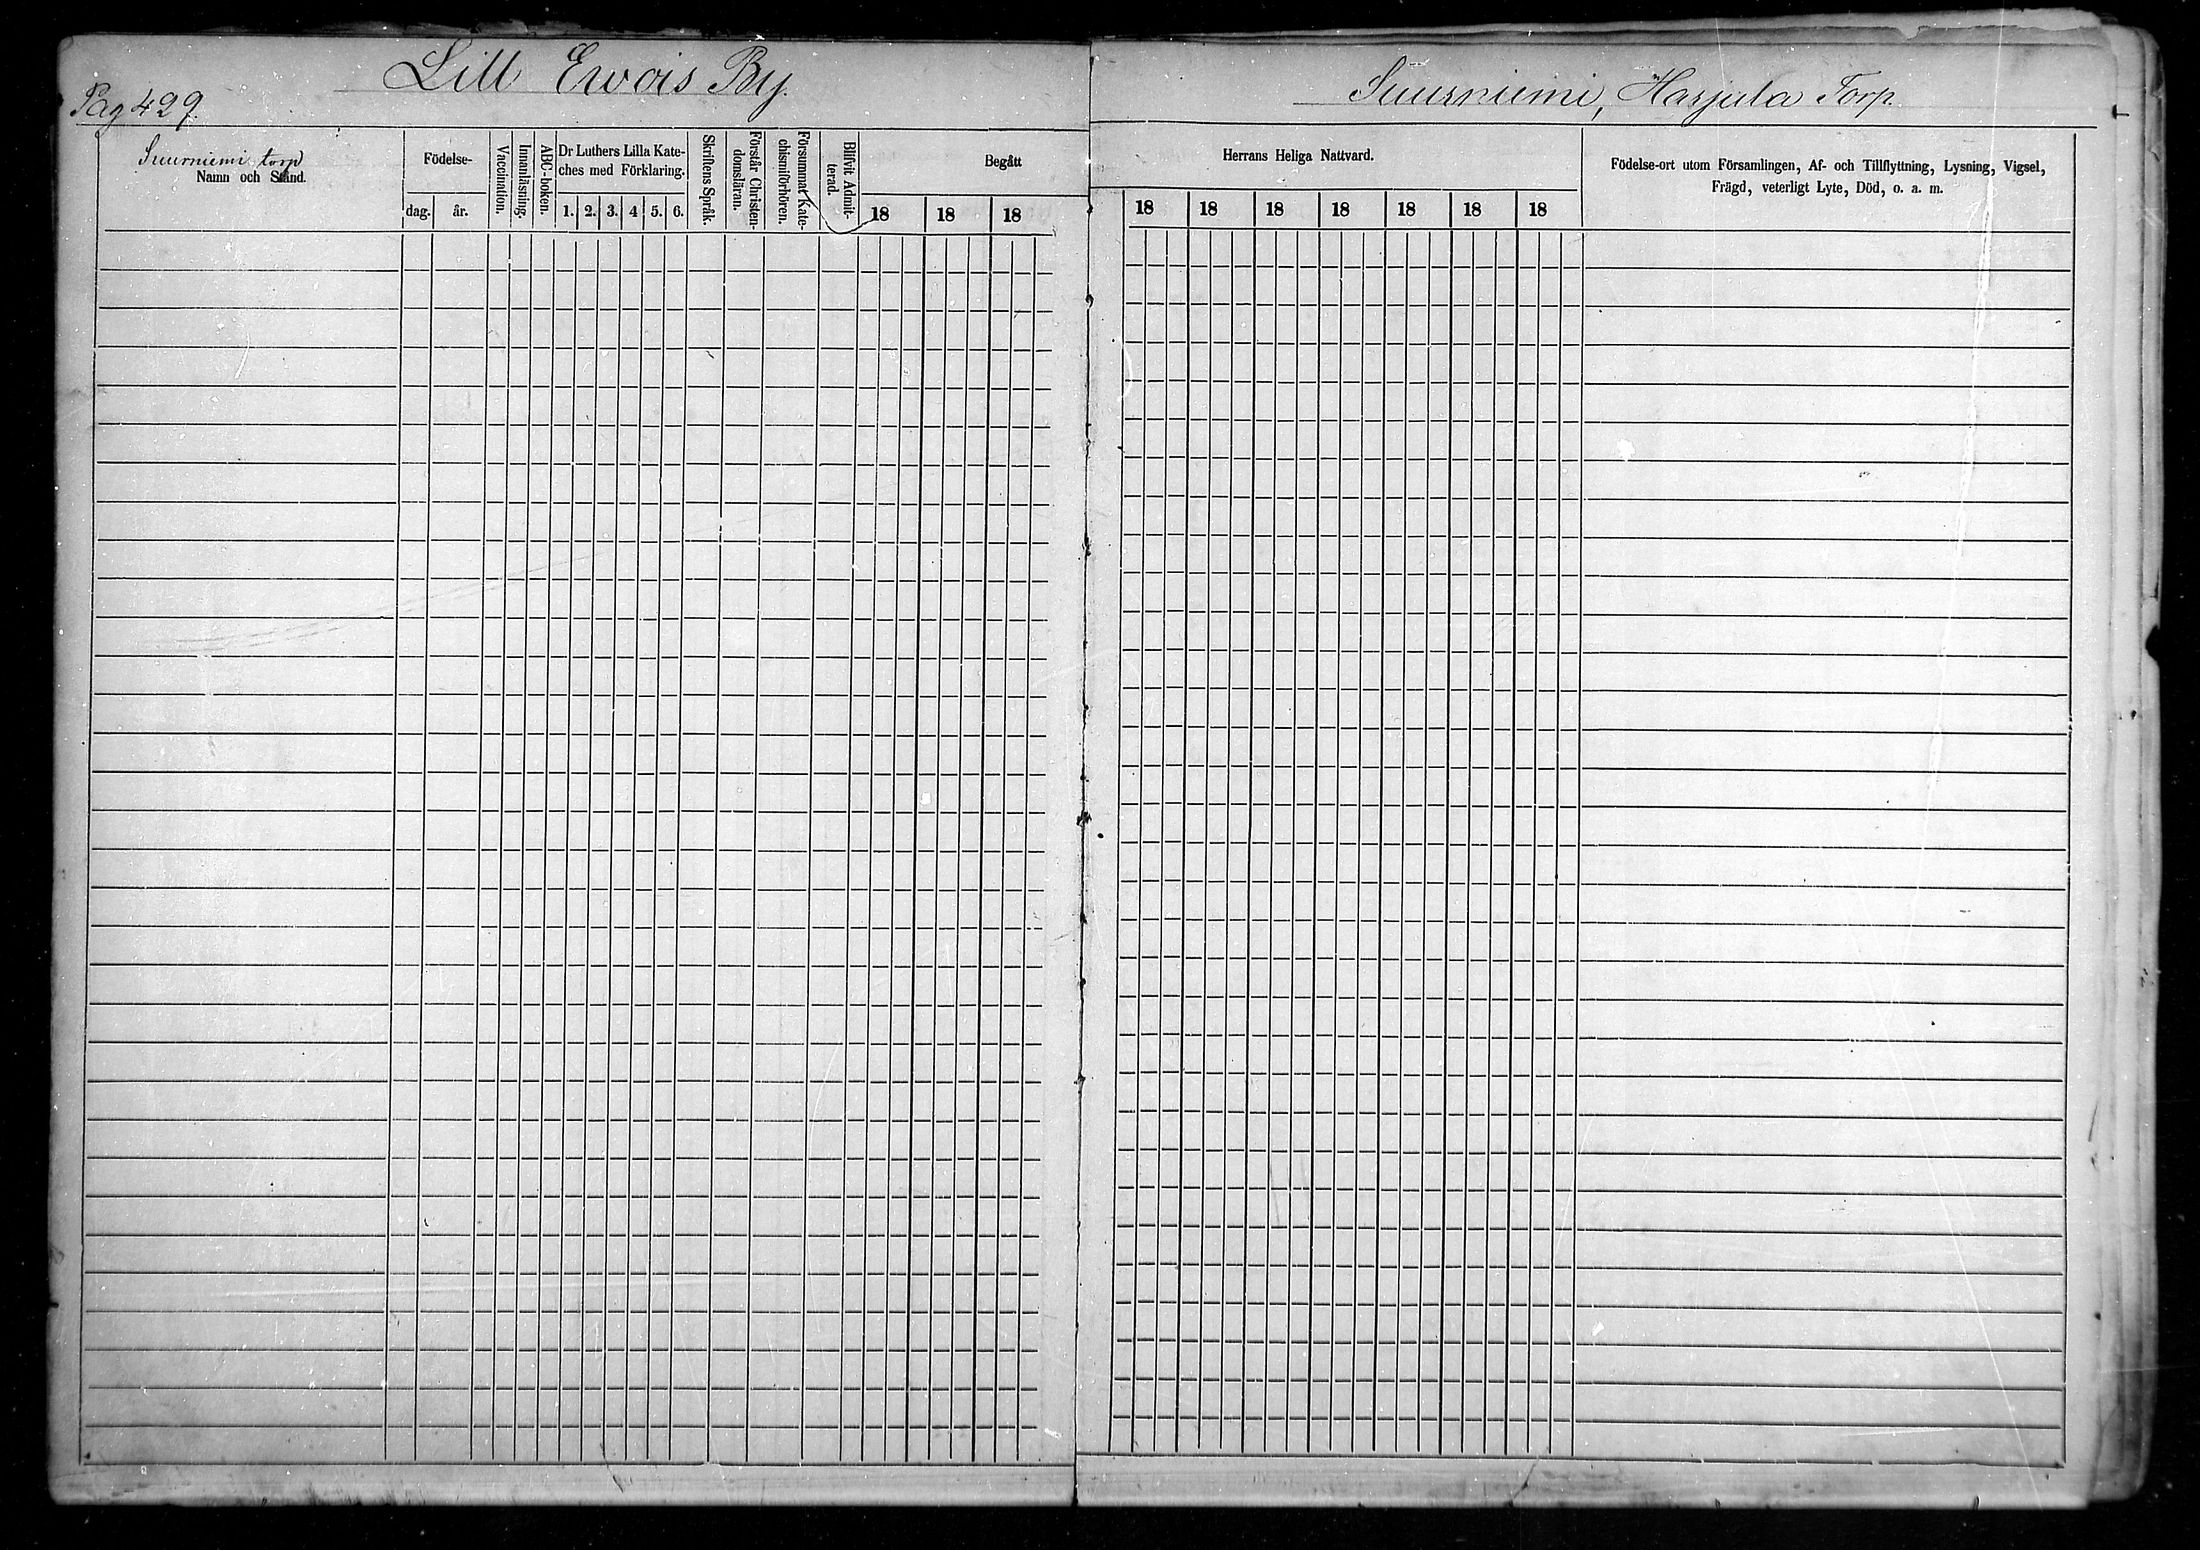 Lill Ewois By.
Suurniemi, Harjula Torp.
Pag 429.
Suurniemi torp
Namn och Stånd.
Födelse-
dag. år.
Vaccination.
Innanläsning.
ABC-boken.
Dr Luthers Lilla Kate-
ches med Förklaring.
1. 2. 3. 4 5. 6.
Skriftens Språk.
Förstår Christen-
domsläran.
Försummat Kate-
chismiförhören.
Blifvit Admit-
terad.
Begått
18 18 18
Herrans Heliga Nattvard.
18 18 18 18 18 18 18
Födelse-ort utom Församlingen, Af- och Tillflyttning, Lysning, Vigsel,
Frägd, veterligt Lyte, Död, o. a. m.